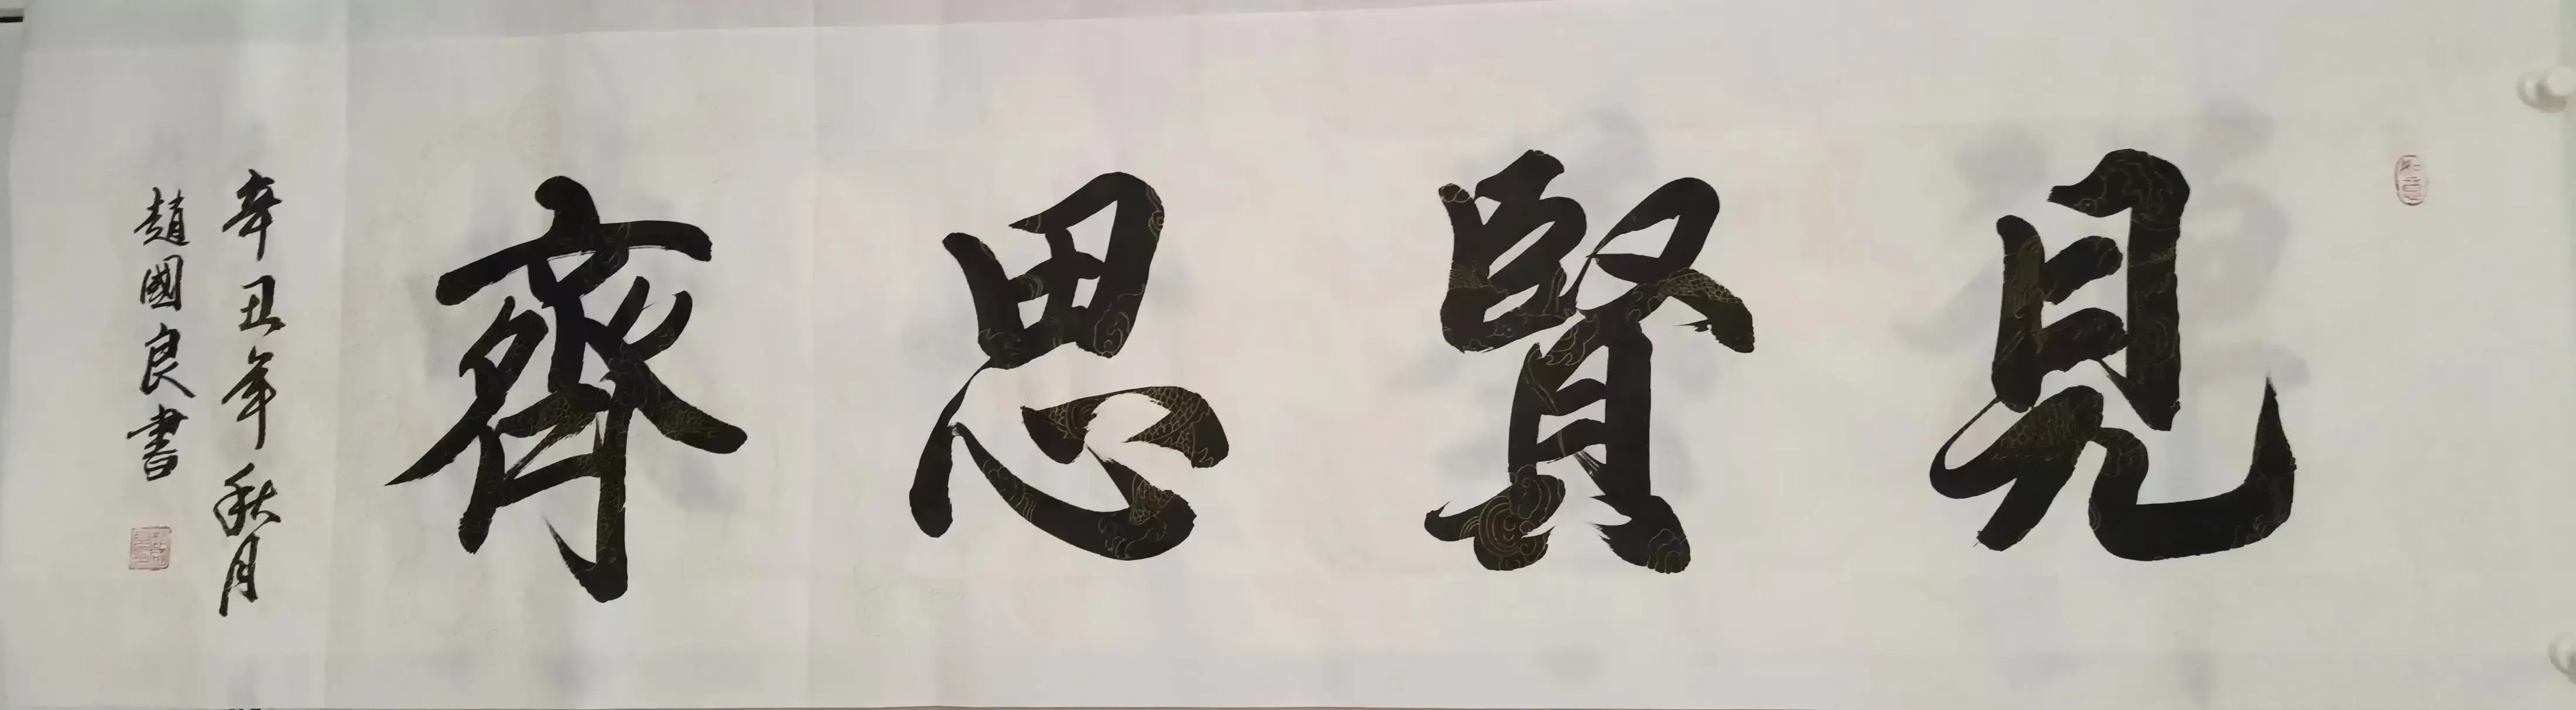 見賢思齊
辛丑年秋月
趙國良書